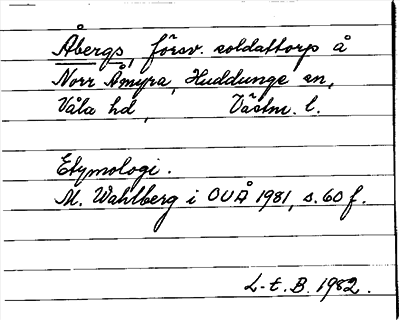 Åbergs, försv. soldattorp å
Norr Åmyra, Huddunge sn,
Våla hd, Västm. l.
Etymologi.
M. Wahlberg i OUÅ 1981, s. 60 f.
L-t. B. 1982.